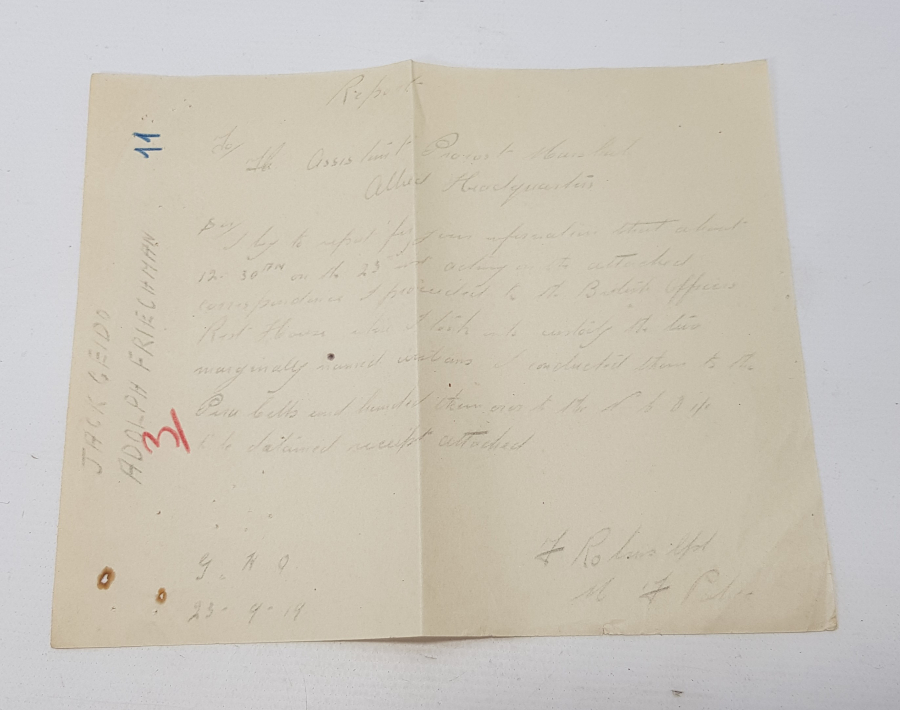 Report
To/
The Assistant Provost Marshal
Allied Headquarters
Sir/
I beg to report for your information that about
12.30 on the 23rd inst acting on the attached
correspondence I proceeded to the British Officers
Rest House when I took into custody the two
marginally named I conducted them to the
Pera and handed them over to the N C O i/c
to be detained receipt attached
G. H Q
23-9-19
M F Police
JACK GEIDO
ADOLPH FRIECHMAN
11
3